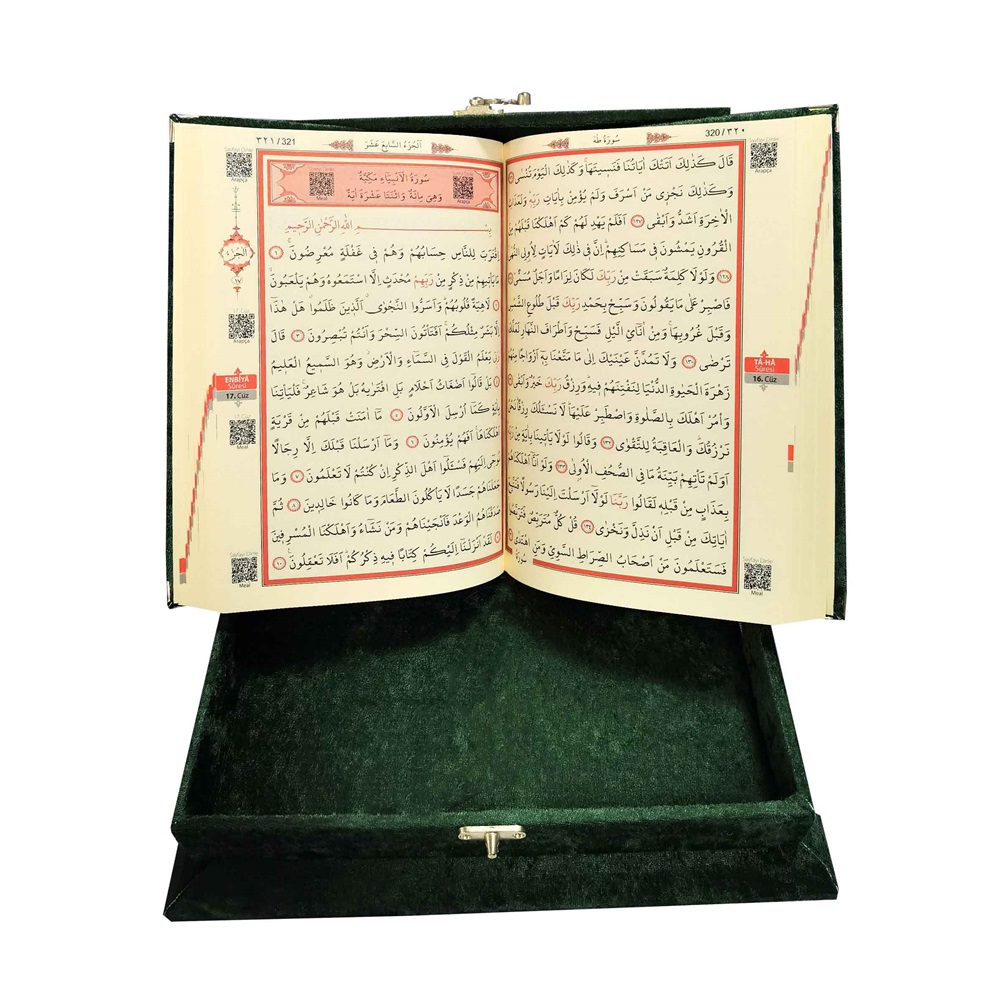 320 / ٣٢٠
سُورَةُ طٰهٰ
Sayfayı Dinle
Arapça
قَالَ كَذٰلِكَ اَتَتْكَ اٰيَاتُنَا فَنَسٖيتَهَاۚ وَكَذٰلِكَ الْيَوْمَ تُنْسٰى
وَكَذٰلِكَ نَجْزٖى مَنْ اَسْرَفَ وَلَمْ يُؤْمِنْ بِاٰيَاتِ رَبِّهٖۜ وَلَعَذَابُ
الْاٰخِرَةِ اَشَدُّ وَاَبْقٰى ﴿١٢٧﴾ اَفَلَمْ يَهْدِ لَهُمْ كَمْ اَهْلَكْنَا قَبْلَهُمْ مِنَ
الْقُرُونِ يَمْشُونَ فٖى مَسَاكِنِهِمْۜ اِنَّ فٖى ذٰلِكَ لَاٰيَاتٍ لِاُولِى النُّهٰى
﴿١٢٨﴾ وَلَوْلَا كَلِمَةٌ سَبَقَتْ مِنْ رَبِّكَ لَكَانَ لِزَامًا وَاَجَلٌ مُسَمًّى
فَاصْبِرْ عَلٰى مَا يَقُولُونَ وَسَبِّحْ بِحَمْدِ رَبِّكَ قَبْلَ طُلُوعِ الشَّمْسِ
وَقَبْلَ غُرُوبِهَاۚ وَمِنْ اٰنَائِ الَّيْلِ فَسَبِّحْ وَاَطْرَافَ النَّهَارِ لَعَلَّكَ
تَرْضٰى ﴿١٣٠﴾ وَلَا تَمُدَّنَّ عَيْنَيْكَ اِلٰى مَا مَتَّعْنَا بِهٖٓ اَزْوَاجًا مِنْهُمْ
زَهْرَةَ الْحَيٰوةِ الدُّنْيَا لِنَفْتِنَهُمْ فٖيهِۜ وَرِزْقُ رَبِّكَ خَيْرٌ وَاَبْقٰى
وَأْمُرْ اَهْلَكَ بِالصَّلٰوةِ وَاصْطَبِرْ عَلَيْهَاۜ لَا نَسْـَٔلُكَ رِزْقًاۜ نَحْنُ
نَرْزُقُكَۜ وَالْعَاقِبَةُ لِلتَّقْوٰى ﴿١٣٢﴾ وَقَالُوا لَوْلَا يَأْتٖينَا بِاٰيَةٍ مِنْ رَبِّهٖۜ
اَوَلَمْ تَأْتِهِمْ بَيِّنَةُ مَا فِى الصُّحُفِ الْاُولٰى ﴿١٣٣﴾ وَلَوْ اَنَّٓا اَهْلَكْنَاهُمْ
بِعَذَابٍ مِنْ قَبْلِهٖ لَقَالُوا رَبَّنَا لَوْلَٓا اَرْسَلْتَ اِلَيْنَا رَسُولًا فَنَتَّبِعَ
اٰيَاتِكَ مِنْ قَبْلِ اَنْ نَذِلَّ وَنَخْزٰى ﴿١٣٤﴾ قُلْ كُلٌّ مُتَرَبِّصٌ فَتَرَبَّصُواۚ
فَسَتَعْلَمُونَ مَنْ اَصْحَابُ الصِّرَاطِ السَّوِىِّ وَمَنِ اهْتَدٰى
TÂ-HÂ
Sûresi
16. Cüz
Sayfayı Dinle
Meal
٣٢١ / 321
اَلْجُزْءُ السَّابِعَ عَشَرَ
Sayfayı Dinle
Arapça
Meal
Arapça
سُورَةُ الْاَنْبِيَاءِ مَكِّيَّةٌ
وَهِىَ مِائَةٌ وَاثْنَتَا عَشْرَةَ اٰيَةً
بِسْمِ اللّٰهِ الرَّحْمٰنِ الرَّحٖيمِ
اِقْتَرَبَ لِلنَّاسِ حِسَابُهُمْ وَهُمْ فٖى غَفْلَةٍ مُعْرِضُونَۚ ﴿١﴾
مَا يَأْتٖيهِمْ مِنْ ذِكْرٍ مِنْ رَبِّهِمْ مُحْدَثٍ اِلَّا اسْتَمَعُوهُ وَهُمْ يَلْعَبُونَۙ
﴿٢﴾ لَاهِيَةً قُلُوبُهُمْۜ وَاَسَرُّوا النَّجْوٰىۗ اَلَّذٖينَ ظَلَمُواۗ هَلْ هٰذَٓا
اِلَّا بَشَرٌ مِثْلُكُمْۚ اَفَتَأْتُونَ السِّحْرَ وَاَنْتُمْ تُبْصِرُونَ ﴿٣﴾ قَالَ
رَبّٖى يَعْلَمُ الْقَوْلَ فِى السَّمَاءِ وَالْاَرْضِۘ وَهُوَ السَّمٖيعُ الْعَلٖيمُ
﴿٤﴾ بَلْ قَالُٓوا اَضْغَاثُ اَحْلَامٍ بَلِ افْتَرٰيهُ بَلْ هُوَ شَاعِرٌۚ فَلْيَأْتِنَا
بِاٰيَةٍ كَمَٓا اُرْسِلَ الْاَوَّلُونَ ﴿٥﴾ مَٓا اٰمَنَتْ قَبْلَهُمْ مِنْ قَرْيَةٍ
اَهْلَكْنَاهَاۚ اَفَهُمْ يُؤْمِنُونَ ﴿٦﴾ وَمَٓا اَرْسَلْنَا قَبْلَكَ اِلَّا رِجَالًا
نُوحٖٓى اِلَيْهِمْ فَسْـَٔلُٓوا اَهْلَ الذِّكْرِ اِنْ كُنْتُمْ لَا تَعْلَمُونَ ﴿٧﴾ وَمَا
جَعَلْنَاهُمْ جَسَدًا لَا يَأْكُلُونَ الطَّعَامَ وَمَا كَانُوا خَالِدٖينَ ﴿٨﴾ ثُمَّ
صَدَقْنَاهُمُ الْوَعْدَ فَاَنْجَيْنَاهُمْ وَمَنْ نَشَاءُ وَاَهْلَكْنَا الْمُسْرِفٖينَ
﴿٩﴾ لَقَدْ اَنْزَلْنَٓا اِلَيْكُمْ كِتَابًا فٖيهِ ذِكْرُكُمْۜ اَفَلَا تَعْقِلُونَ۟ ﴿١٠﴾
اَلْجُزْءُ
١٧
Arapça
ENBİYÂ
Sûresi
17. Cüz
17. Cüz
Meal
Sayfayı Dinle
Meal